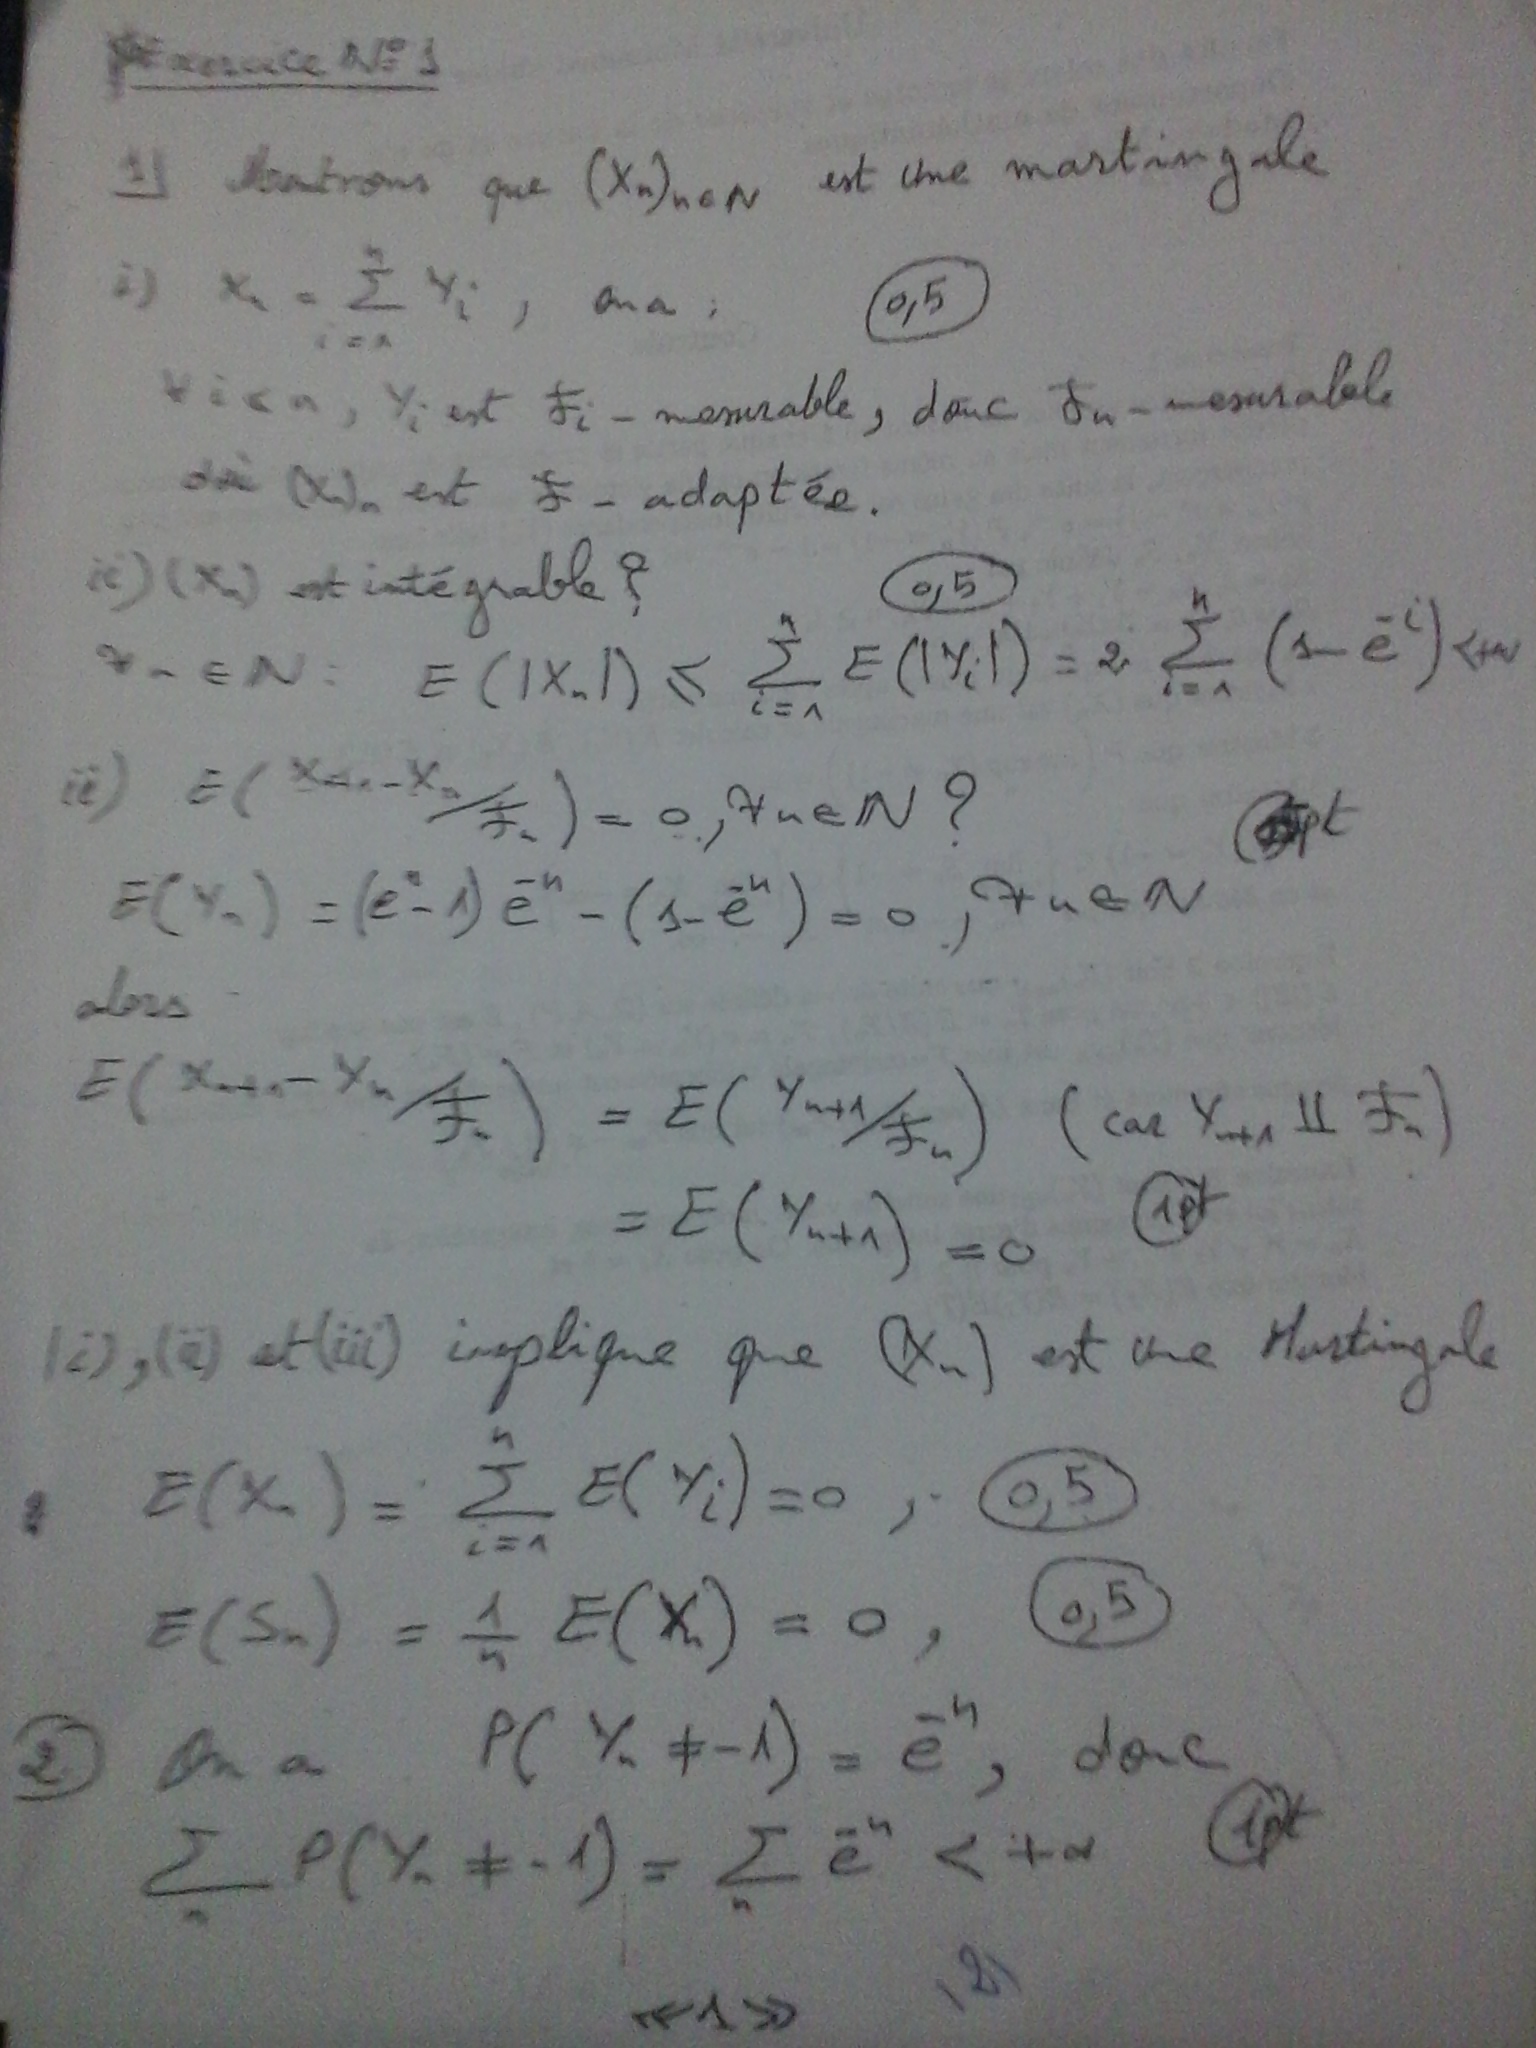 Exercice N° 1
1) Montrons que (Xn)n∈N est une martingale
i) Xn = Σ_{i=1}^{n} Yi , on a : 0,5
∀ i ≤ n, Yi est Fi - mesurable, donc Fn - mesurable
d'où (Xn)n est F - adaptée.
ii) (Xn) est intégrable ? 0,5
∀ n ∈ N : E(|Xn|) ≤ Σ_{i=1}^{n} E(|Yi|) = 2 Σ_{i=1}^{n} (1 - e^{-i}) < +∞
iii) E(Xn+1 - Xn / Fn) = 0, ∀ n ∈ N ? pt
E(Yn) = (e^n - 1) e^{-n} - (1 - e^{-n}) = 0, ∀ n ∈ N
alors
E(Xn+1 - Xn / Fn) = E(Yn+1 / Fn) (car Yn+1 ⊥⊥ Fn)
= E(Yn+1) = 0 1pt
(i), (ii) et (iii) implique que (Xn) est une Martingale
E(Xn) = Σ_{i=1}^{n} E(Yi) = 0 , 0,5
E(Sn) = 1/n E(Xn) = 0 , 0,5
2 On a P(Yn ≠ -1) = e^{-n}, donc
Σ_n P(Yn ≠ -1) = Σ_n e^{-n} < +∞ 1pt
(2)
«1»